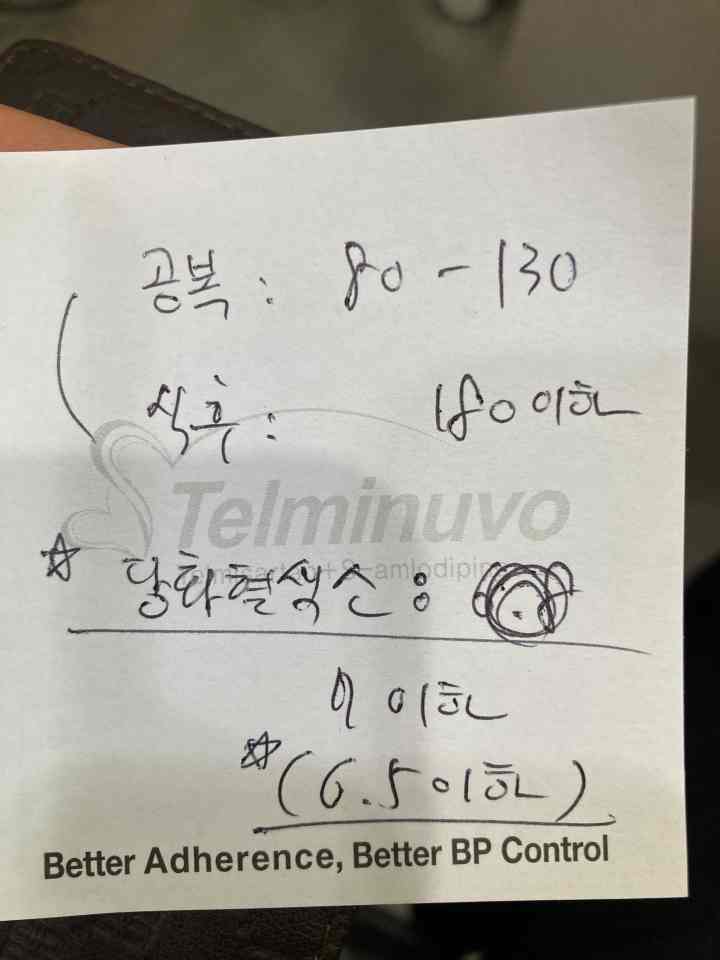 공복 : 80 - 130
식후 : 180 이하
Telminuvo
Telmisartan + S-amlodipine
☆ 당화혈색소 :
7 이하
☆ (6.5 이하)
Better Adherence, Better BP Control